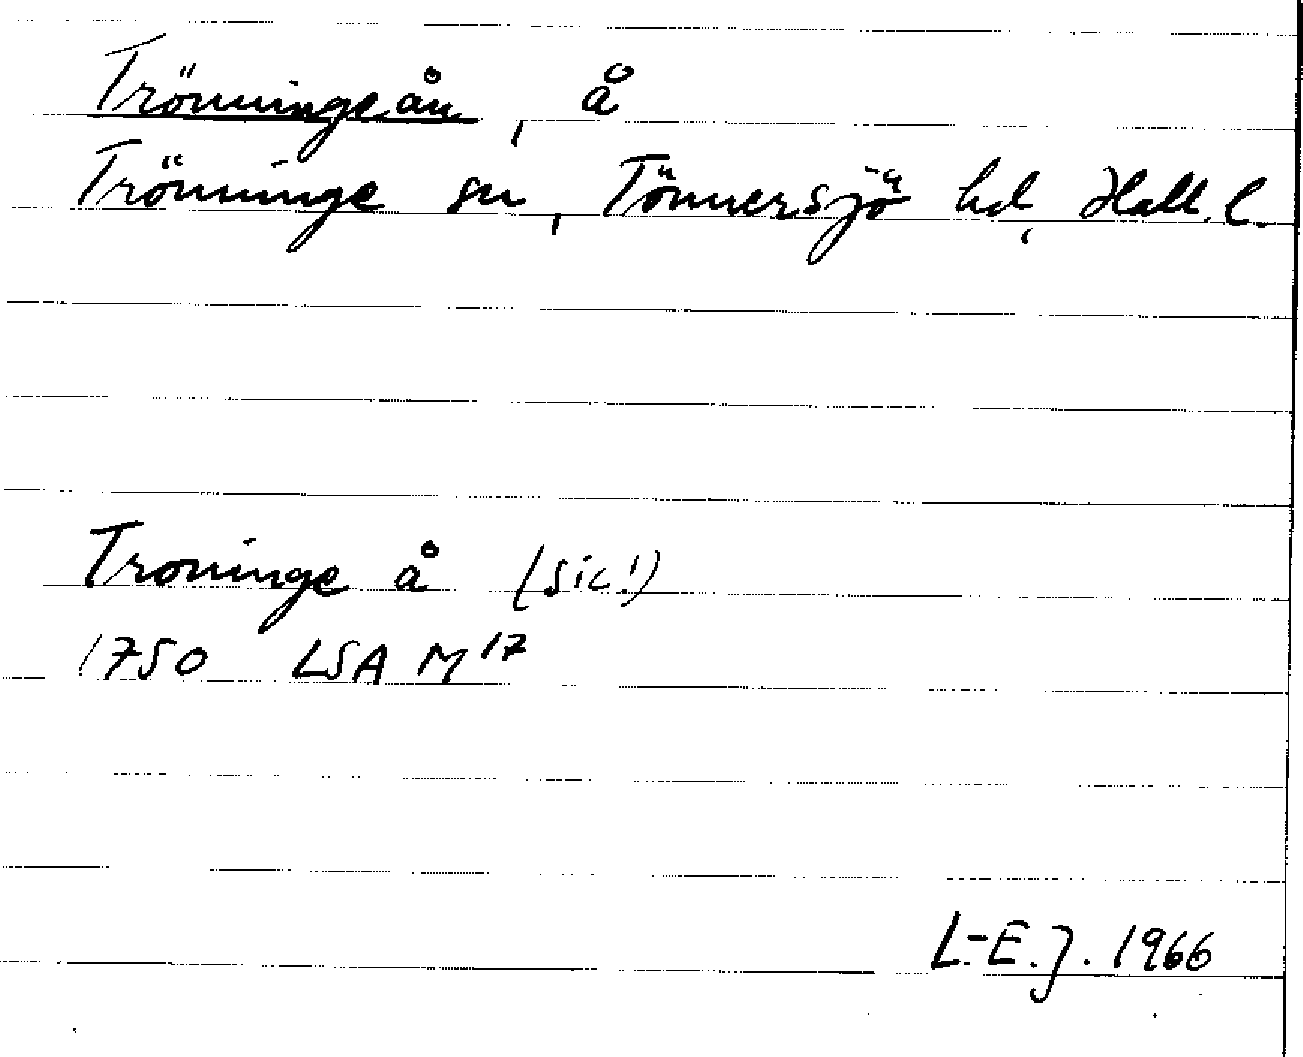 Trönningeån, å
Trönninge sn, Tönnersjö hd, Hall. l.
Troninge å (sic!)
1750 LSA M 17
L-E.J. 1966